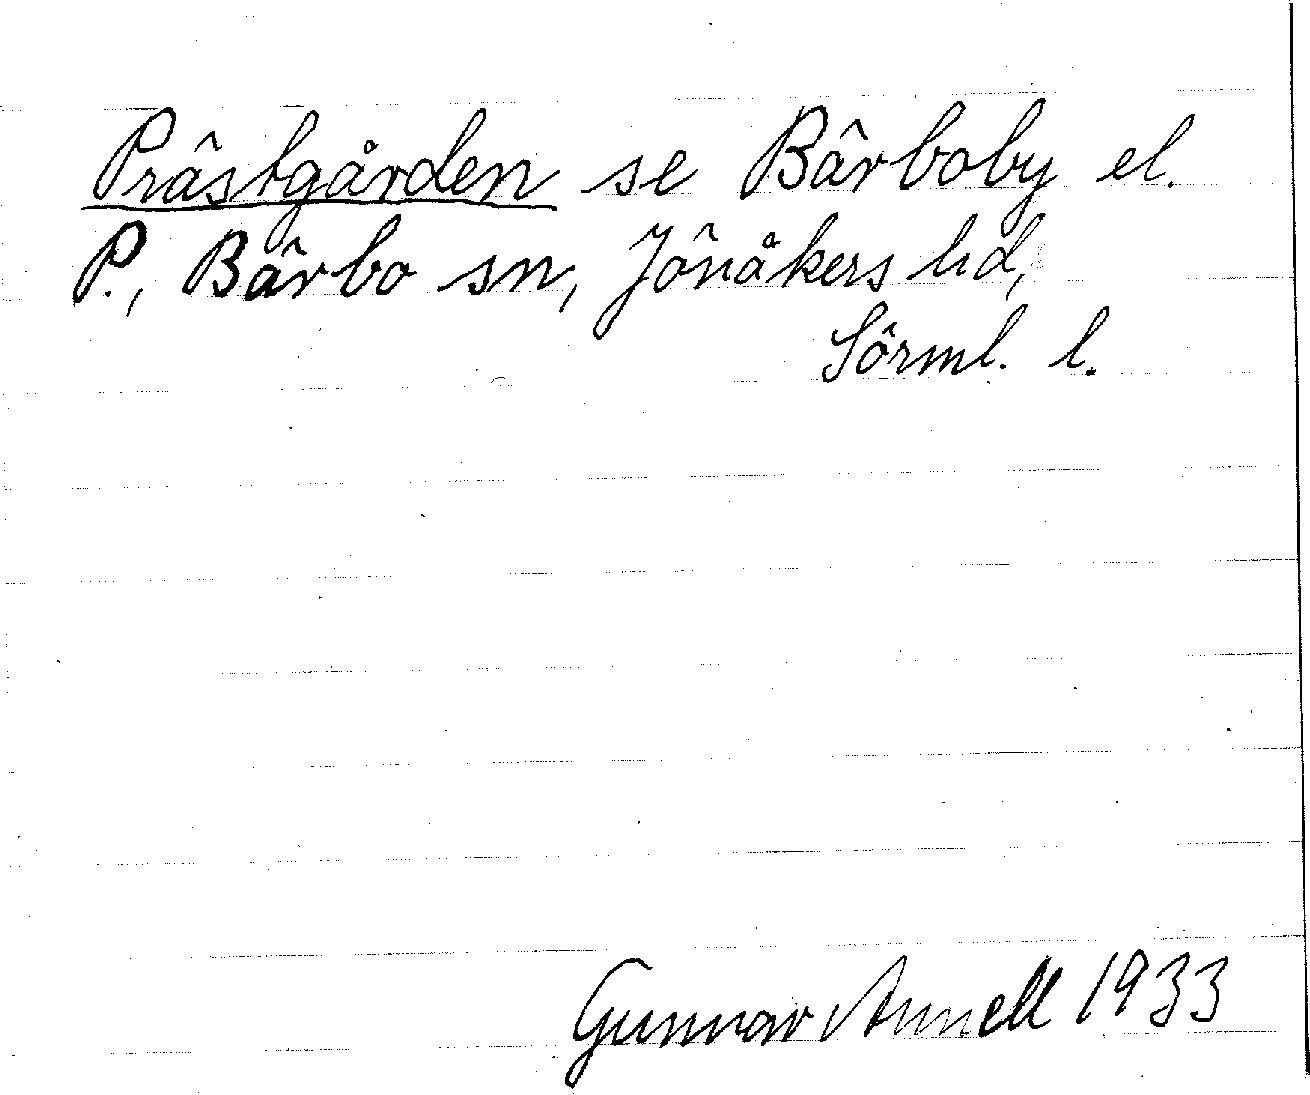 Prästgården se Bärboby el.
P., Bärbo sn, Jönåkers hd,
Sörml. l.
Gunnar Annell 1933